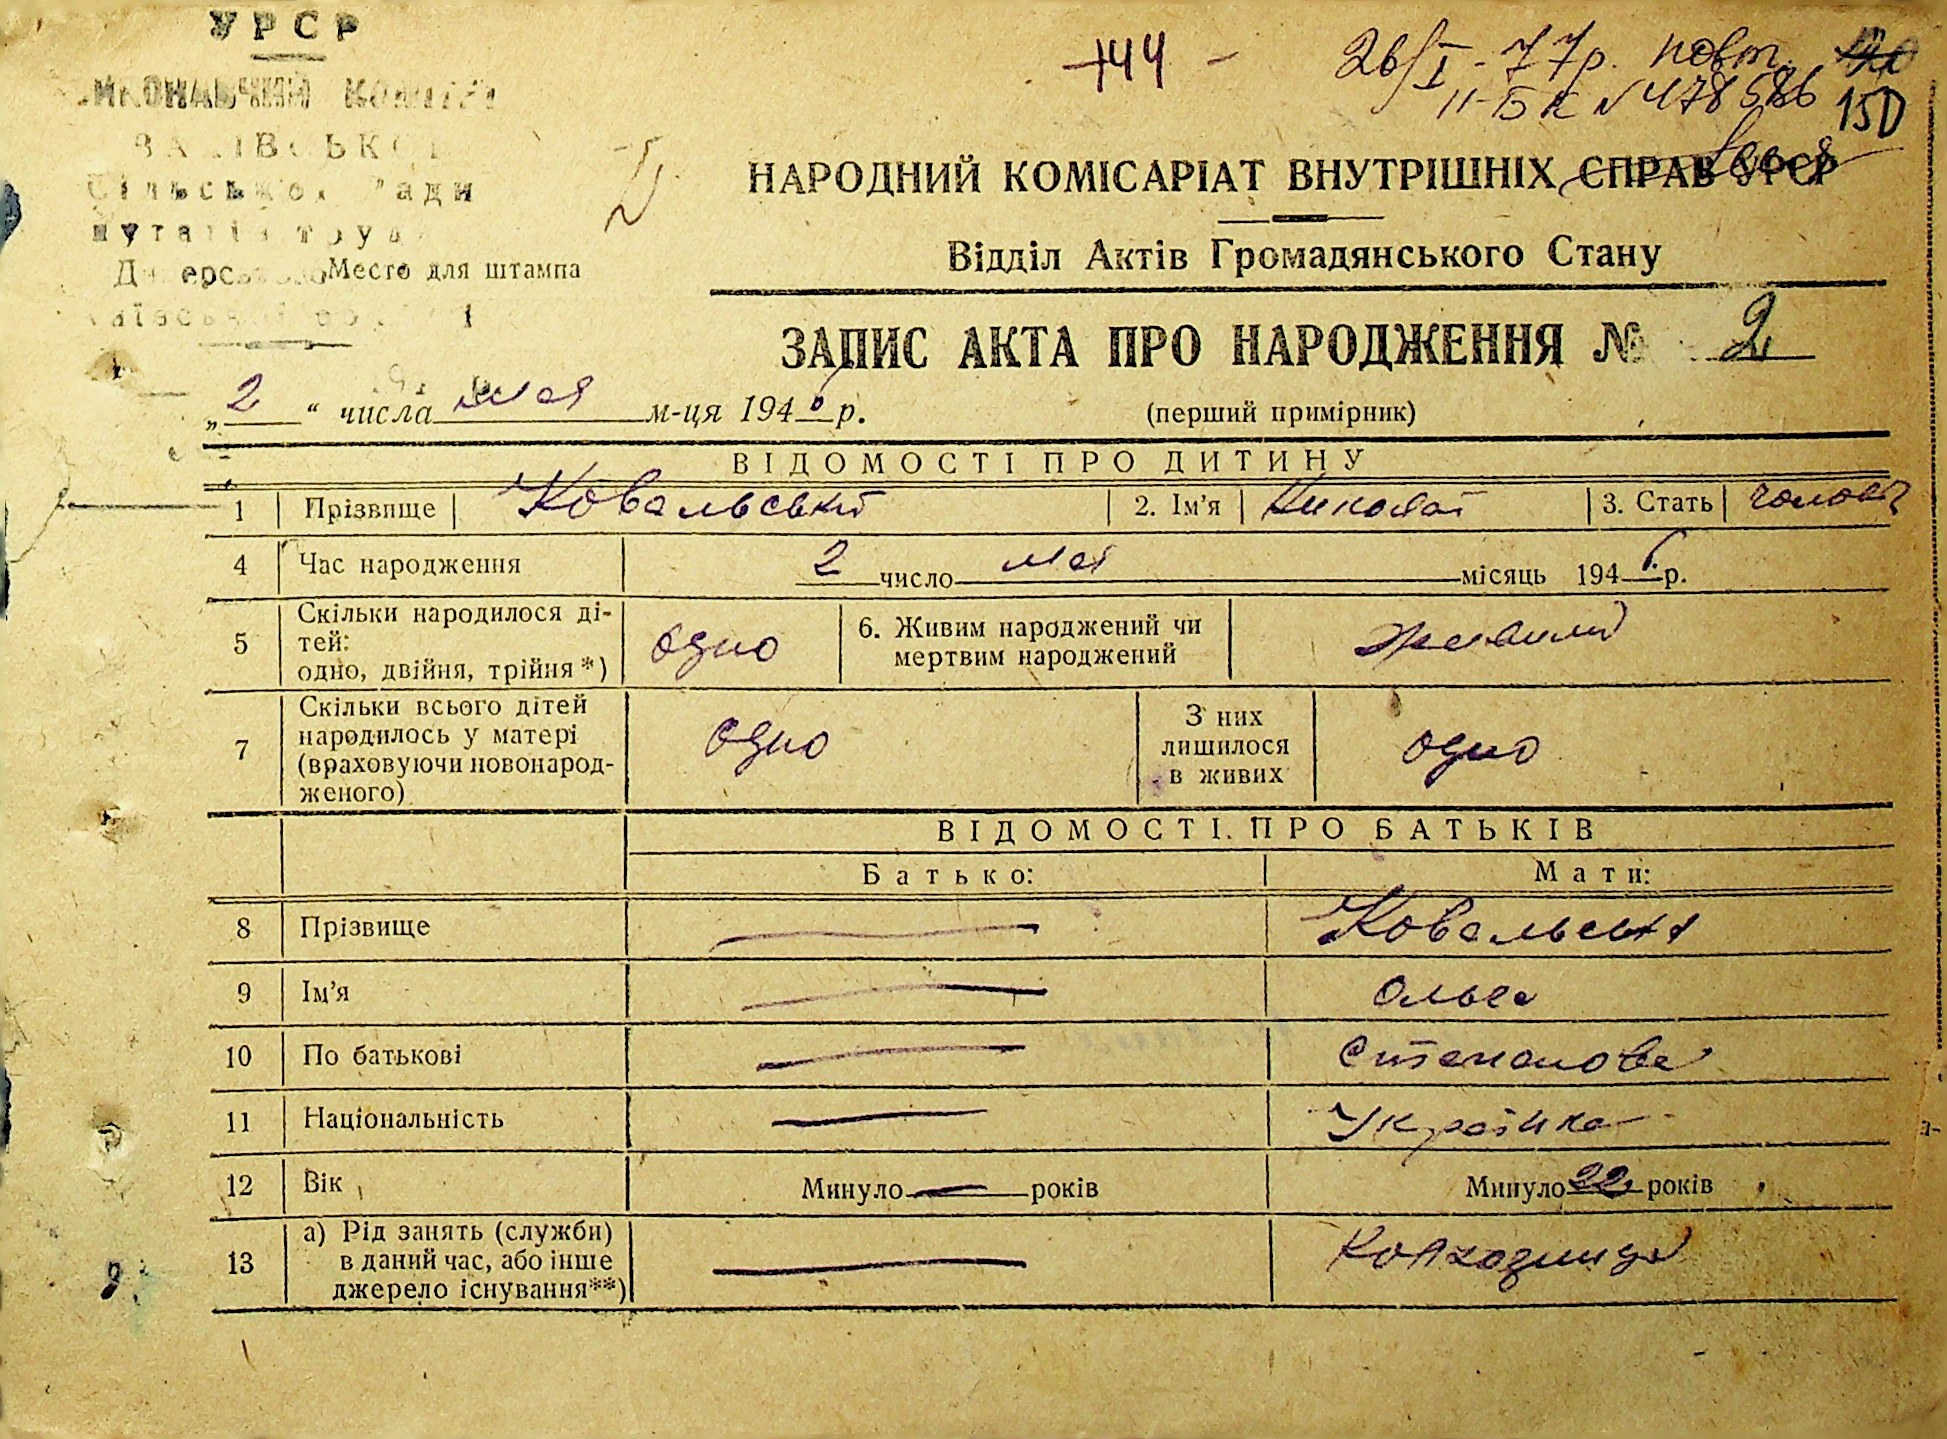 УРСР
144 -
26/I - 77р. повт.
II-БК №478586
150
СІЛЬСЬКОЇ Ради
НАРОДНИЙ КОМІСАРІАТ ВНУТРІШНІХ СПРАВ УРСР
Відділ Актів Громадянського Стану
Место для штампа
ЗАПИС АКТА ПРО НАРОДЖЕННЯ № 2
„2“ числа мая м-ця 1946 р.
(перший примірник)
ВІДОМОСТІ ПРО ДИТИНУ
1 Прізвище Ковальський 2. Ім'я Николай 3. Стать
4 Час народження 2 число мая місяць 1946 р.
5 Скільки народилося ді-
тей:
одно, двійня, трійня*) одно 6. Живим народжений чи
мертвим народжений живим
7 Скільки всього дітей
народилось у матері
(враховуючи новонарод-
женого) одно З них
лишилося
в живих одно
ВІДОМОСТІ ПРО БАТЬКІВ
Батько: Мати:
8 Прізвище — Ковальська
9 Ім'я — Ольга
10 По батькові — Степанова
11 Національність — Українка
12 Вік Минуло — років Минуло 22 років
13 а) Рід занять (служби)
в даний час, або інше
джерело існування**) — Колхозница